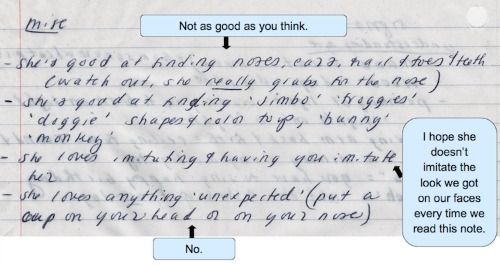 misc
Not as good as you think.
- She's good at finding noses, ears, hair & toes & teeth
(watch out, she really grabs for the nose)
- she's good at finding 'Jimbo' 'froggies'
'doggie' shapes & color toys, 'bunny'
'monkey'
- she loves imitating & having you imitate
her
- she loves anything 'unexpected' (put a
cup on your head or on your nose)
I hope she
doesn't
imitate the
look we got
on our faces
every time we
read this note.
No.